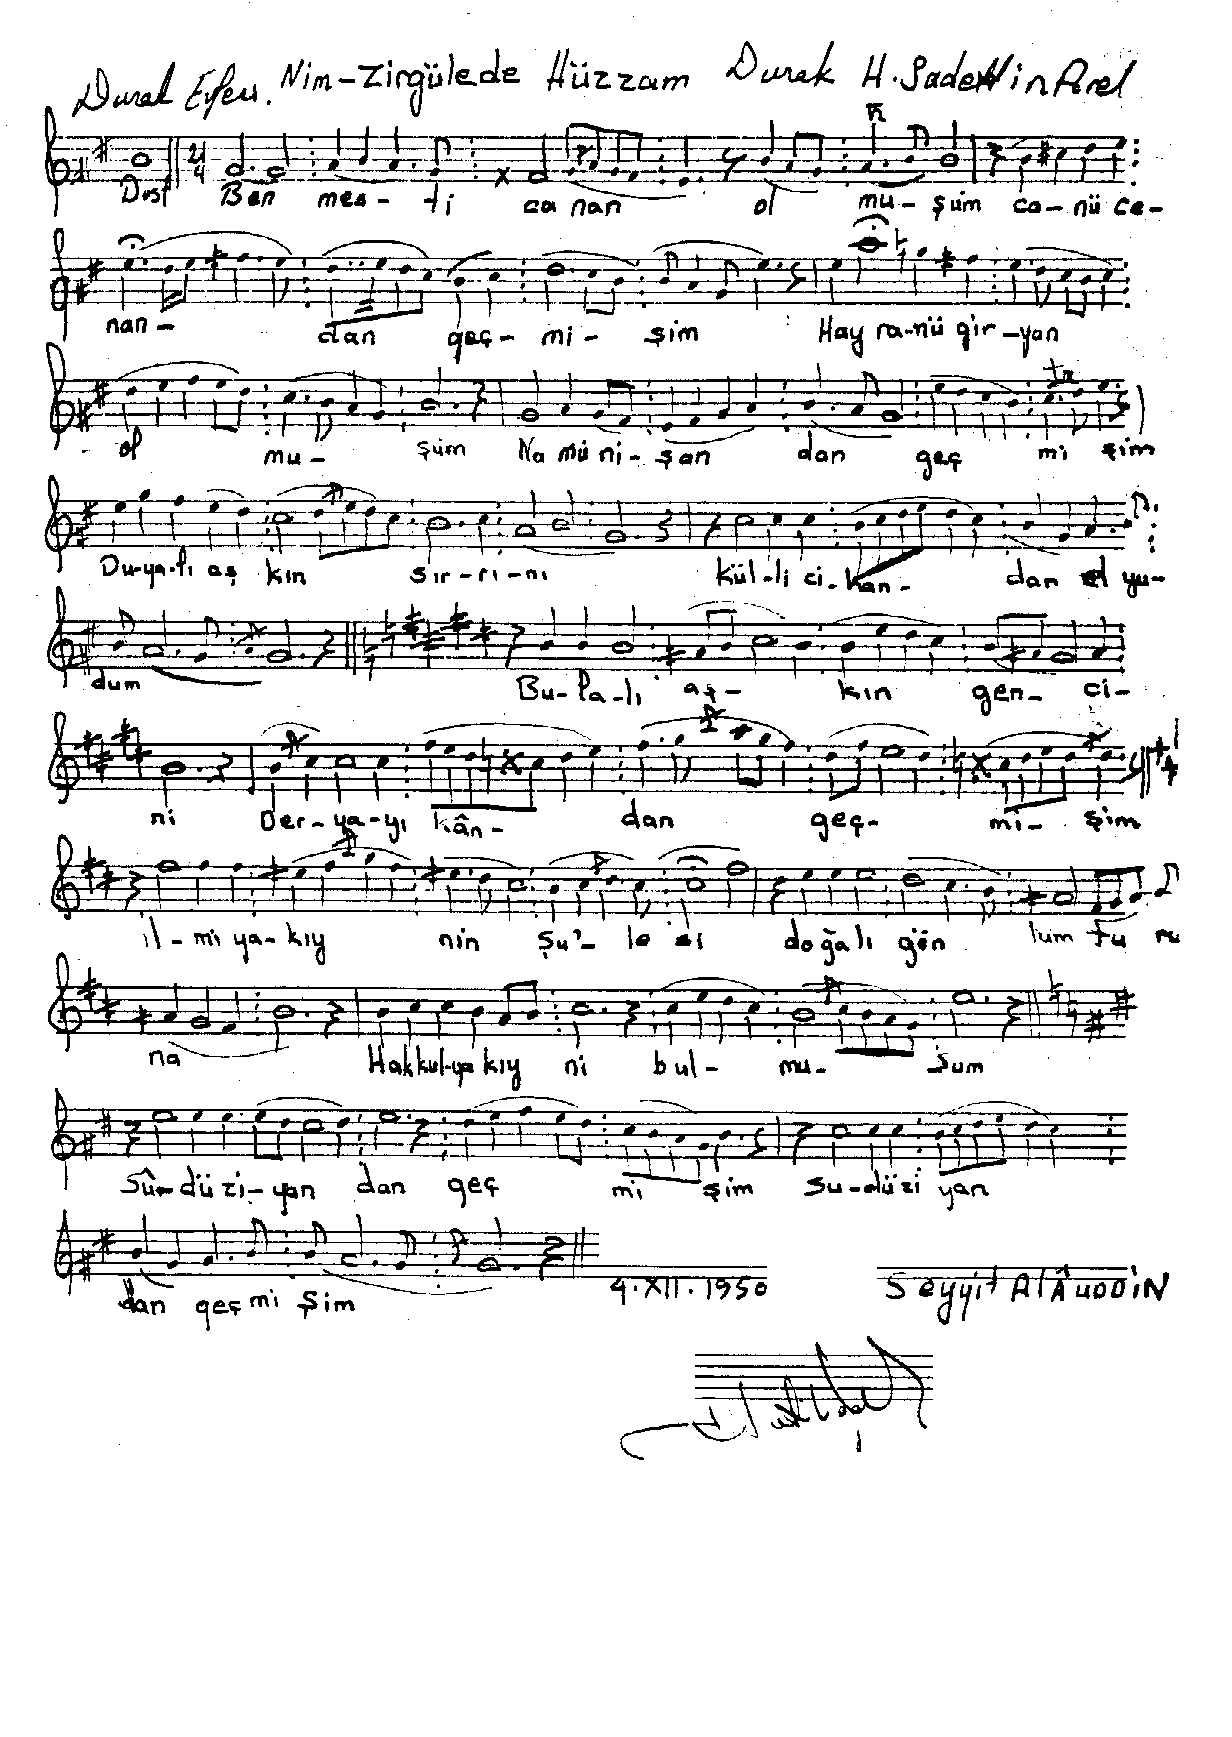 Durak Evferi. Nim-Zirgülede Hüzzam Durak H. Sadettin Arel
21 4
Dost Ben mes- ti ca nan ol mu- şum ca-nü ce-
nan- dan geç- mi- şim Hay ra-nü gir-yan
ol mu- şum Na mü ni- şan dan geç mi şim
Du-ya-lı aş kın sır-rı-nı kül-li ci-han- dan el yu-
dum Bu-la-lı aş- kın gen- ci-
ni Der-ya-yı kân- dan geç- mi- şim
il-mi ya-kıy nin şu'-le si doğalı gön lüm tu ru
na Hakkul-ya kıy ni bul- mu- şum
Sû-dü zi-yan dan geç mi şim su-dü zi yan
dan geç mi şim
4.XII.1950 Seyyit Alâuddin